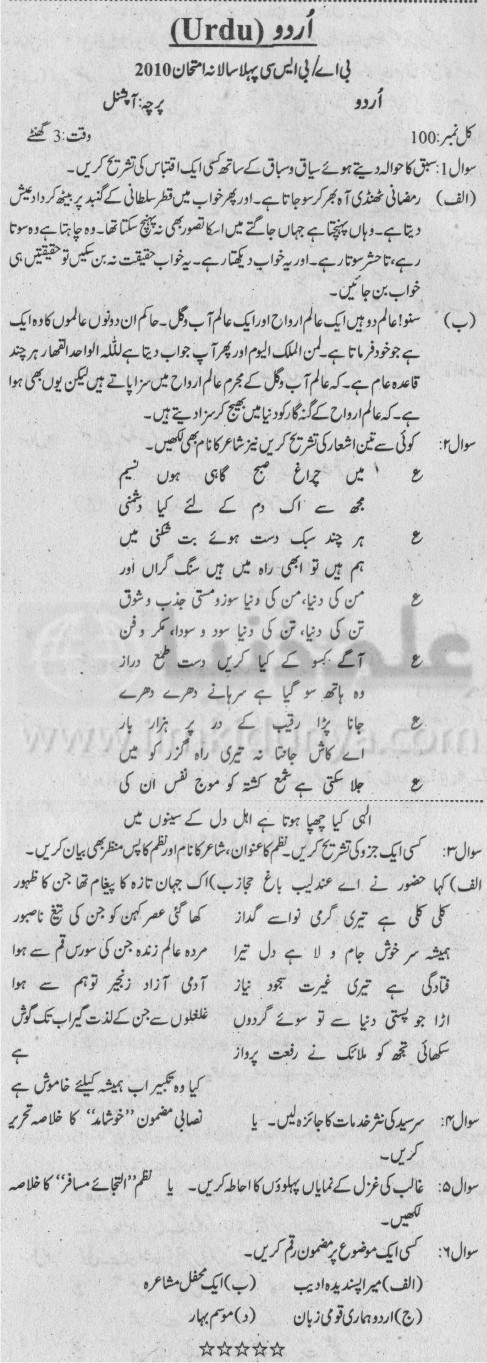 اُردو (Urdu)
بی اے/بی ایس سی پہلا سالانہ امتحان 2010
اُردو پرچہ: آپشنل
کل نمبر: 100 وقت: 3 گھنٹے
سوال 1: سبق کا حوالہ دیتے ہوئے سیاق و سباق کے ساتھ کسی ایک اقتباس کی تشریح کریں۔
(الف) رمضانی ٹھنڈی آہ بھر کر سو جاتا ہے۔ اور پھر خواب میں قصر سلطانی کے گنبد پر بیٹھ کر داد عیش
دیتا ہے۔ وہاں پہنچتا ہے جہاں جاگتے میں اسکا تصور بھی نہ پہنچ سکتا تھا۔ وہ چاہتا ہے وہ سوتا
رہے، تا حشر سوتا رہے۔ اور یہ خواب دیکھتا رہے۔ یہ خواب حقیقت نہ بن سکیں تو حقیقتیں ہی
خواب بن جائیں۔
(ب) سنو! عالم دو ہیں ایک عالم ارواح اور ایک عالم آب و گل۔ حاکم ان دونوں عالموں کا وہ ایک
ہے جو خود فرماتا ہے۔ لمن الملک الیوم اور پھر آپ جواب دیتا ہے للہ الواحد القھار ہر چند
قاعدہ عام ہے۔ کہ عالم آب و گل کے مجرم عالم ارواح میں سزا پاتے ہیں لیکن یوں بھی ہوا
ہے۔ کہ عالم ارواح کے گنہگار کو دنیا میں بھیج کر سزا دیتے ہیں۔
سوال ۲: کوئی سے تین اشعار کی تشریح کریں نیز شاعر کا نام بھی لکھیں۔
ع میں چراغ صبح گاہی ہوں نسیم
مجھ سے اک دم کے لئے کیا دشمنی
ع ہر چند سبک دست ہوئے بت شکنی میں
ہم ہیں تو ابھی راہ میں ہیں سنگ گراں اور
ع من کی دنیا، من کی دنیا سوز و مستی جذب و شوق
تن کی دنیا، تن کی دنیا سود و سودا، مکر و فن
ع آگے کسو کے کیا کریں دست طمع دراز
وہ ہاتھ سو گیا ہے سرہانے دھرے دھرے
ع جانا پڑا رقیب کے در پر ہزار بار
اے کاش جانتا نہ تیری راہ گزر کو میں
ع جلا سکتی ہے شمع کشتہ کو موج نفس ان کی
الٰہی کیا چھپا ہوتا ہے اہل دل کے سینوں میں
سوال ۳: کسی ایک جزو کی تشریح کریں۔ نظم کا عنوان، شاعر کا نام اور نظم کا پس منظر بھی بیان کریں۔
الف) کہا حضور نے اے عندلیب باغ حجاز ب) اک جہان تازہ کا پیغام تھا جن کا ظہور
کلی کلی ہے تیری گرمی نوا سے گداز کھا گئی عصر کہن کو جن کی تیغ ناصبور
ہمیشہ سر خوش جام و لا ہے دل تیرا مردہ عالم زندہ جن کی سورس قم سے ہوا
فتادگی ہے تیری غیرت سجود نیاز آدمی آزاد زنجیر توہم سے ہوا
اڑا جو پستی دنیا سے تو سوئے گردوں غلغلوں سے جن کے لذت گیر اب تک گوش
سکھائی تجھ کو ملائک نے رفعت پرواز ہے
کیا وہ تکبیر اب ہمیشہ کیلئے خاموش ہے
سوال ۴: سرسید کی نثر خدمات کا جائزہ لیں۔ یا نصابی مضمون "خوشامد" کا خلاصہ تحریر
کریں۔
سوال ۵: غالب کی غزل کے نمایاں پہلوؤں کا احاطہ کریں۔ یا نظم "التجائے مسافر" کا خلاصہ
لکھیں۔
سوال ۶: کسی ایک موضوع پر مضمون رقم کریں۔
(الف) میرا پسندیدہ ادیب (ب) ایک محفل مشاعرہ
(ج) اردو ہماری قومی زبان (د) موسم بہار
☆☆☆☆☆
علم دنیا
www.ilmkidunya.com